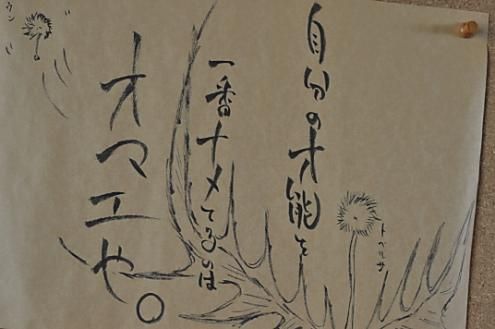 自分の才能を
一番ナメてるのは
オマエや。
ウン